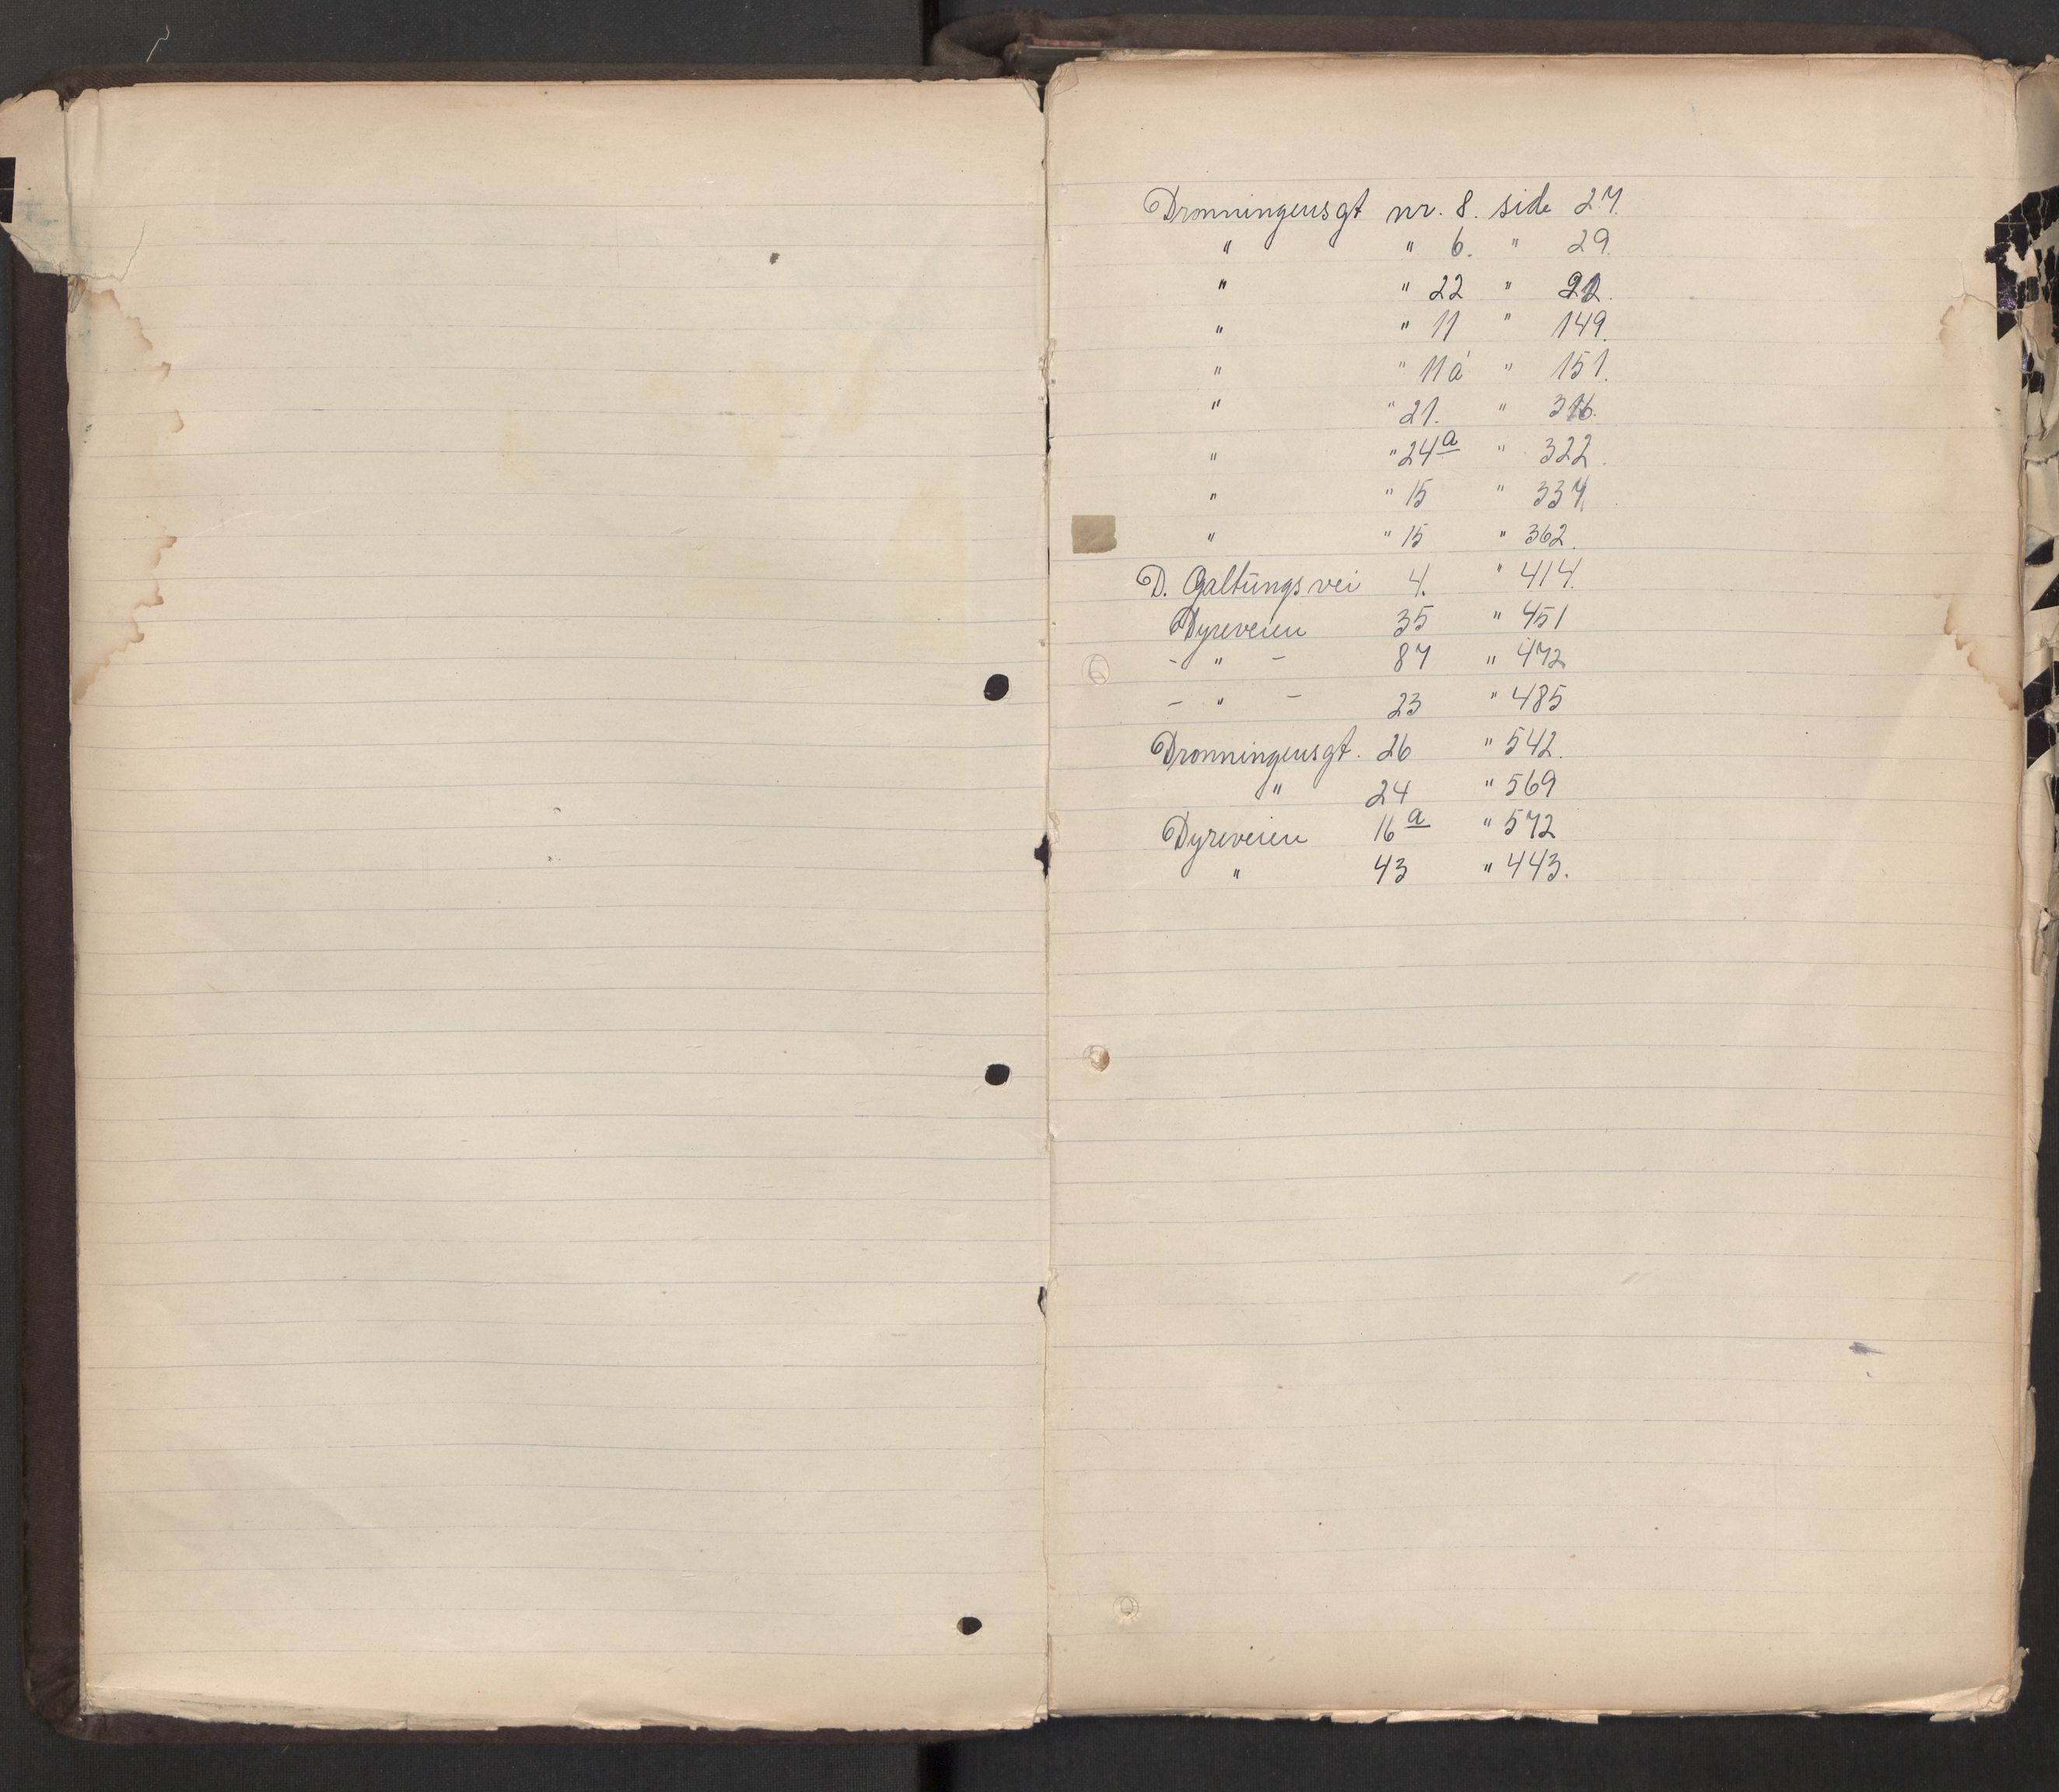 Dronningensgt nr. 8. side 27.
" " 6. " 29.
" " 22 " 92.
" " 11 " 149.
" " 11a " 151.
" " 21. " 316.
" " 24a " 322.
" " 15 " 337
" " 15 " 362.
D. Galtungs vei 4. " 414.
Dyreveien 35 " 451
- " - 87 " 472
- " - 23 " 485
Dronningensgt. 26 " 542.
" 24 " 569
Dyreveien 16a " 572
" 43 " 443.